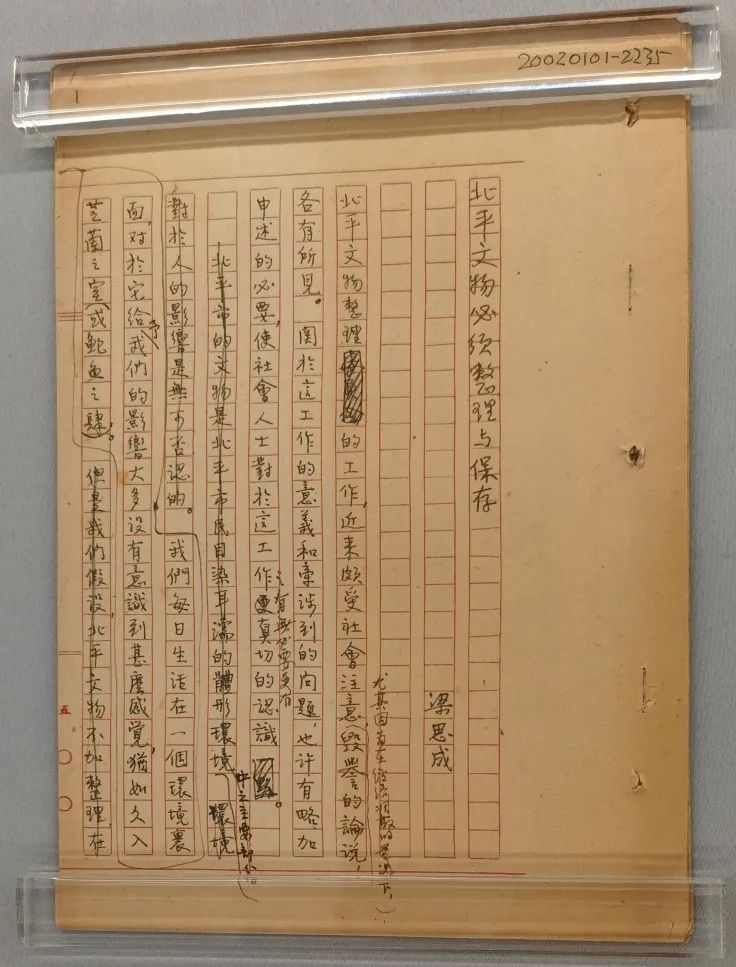 20020101-2235
北平文物必须整理与保存
梁思成
北平文物整理的工作,近来頗受社會注意(毀譽的論說,
尤其因者在經濟的景況下,)
各有所見。関於這工作的意義和牽涉到的问題,也许有略加
申述的必要,使社會人士對於這工作更真切的認識。
之有無必要更有
北平市的文物是北平市民目染耳濡的體形環境 環境
中之主要部份
對於人的影響是無可否認的。我們每日生活在一個環境裏
面,对於它给予我們的影響大多没有意識到甚麼感觉,猶如久入
芝蘭之室(或鮑魚之肆)。但是我們假设,北平文物不加整理,在
五